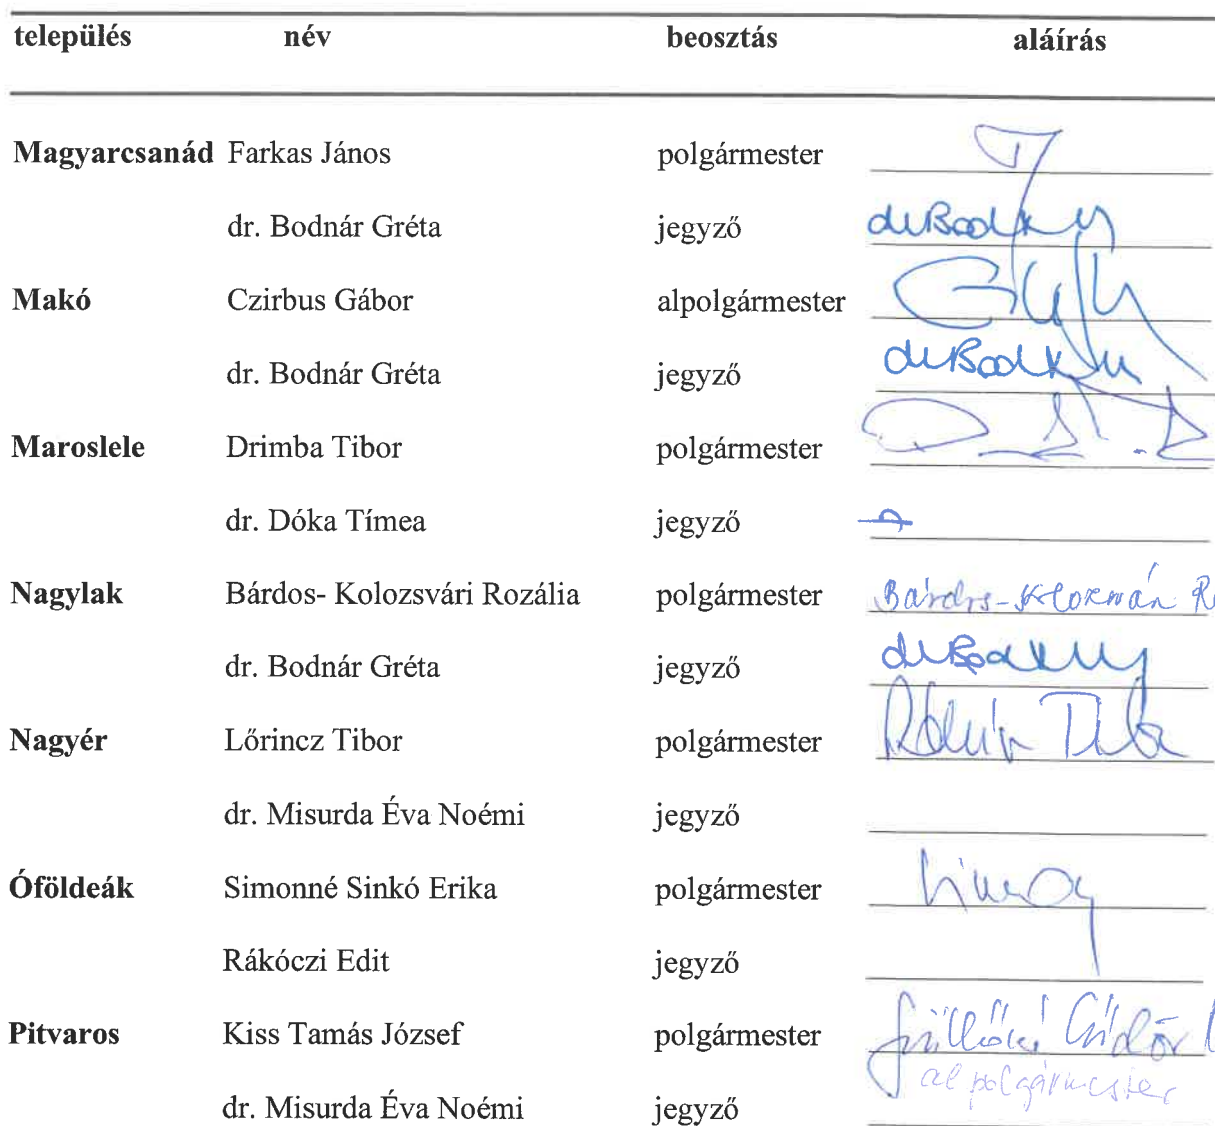 település név beosztás aláírás
Magyarcsanád Farkas János polgármester
dr. Bodnár Gréta jegyző
Makó Czirbus Gábor alpolgármester
dr. Bodnár Gréta jegyző
Maroslele Drimba Tibor polgármester
dr. Dóka Tímea jegyző
Nagylak Bárdos- Kolozsvári Rozália polgármester Bárdos-
dr. Bodnár Gréta jegyző
Nagyér Lőrincz Tibor polgármester
dr. Misurda Éva Noémi jegyző
Óföldeák Simonné Sinkó Erika polgármester
Rákóczi Edit jegyző
Pitvaros Kiss Tamás József polgármester
alpolgármester
dr. Misurda Éva Noémi jegyző